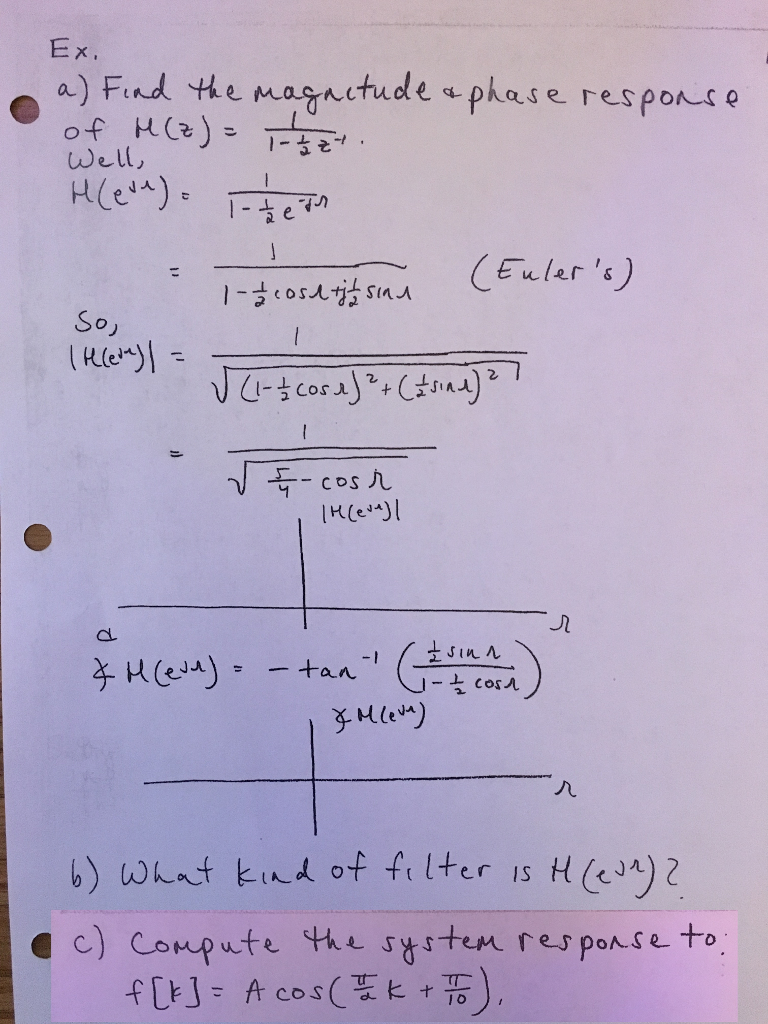 Ex.
a) Find the magnitude & phase response
of H(z) = 1/(1-½z⁻¹).
Well,
H(e^{jΩ}) = 1/(1-½e^{-jΩ})
= 1/(1-½cosΩ+j½sinΩ) (Euler's)
So,
|H(e^{jΩ})| = 1/√((1-½cosΩ)²+(½sinΩ)²)
= 1/√(5/4-cosΩ)
|H(e^{jΩ})|
Ω
&
∡H(e^{jΩ}) = -tan⁻¹(½sinΩ/(1-½cosΩ))
∡H(e^{jΩ})
Ω
b) What kind of filter is H(e^{jΩ})?
c) Compute the system response to:
f[k] = A cos(π/2 k + π/10).